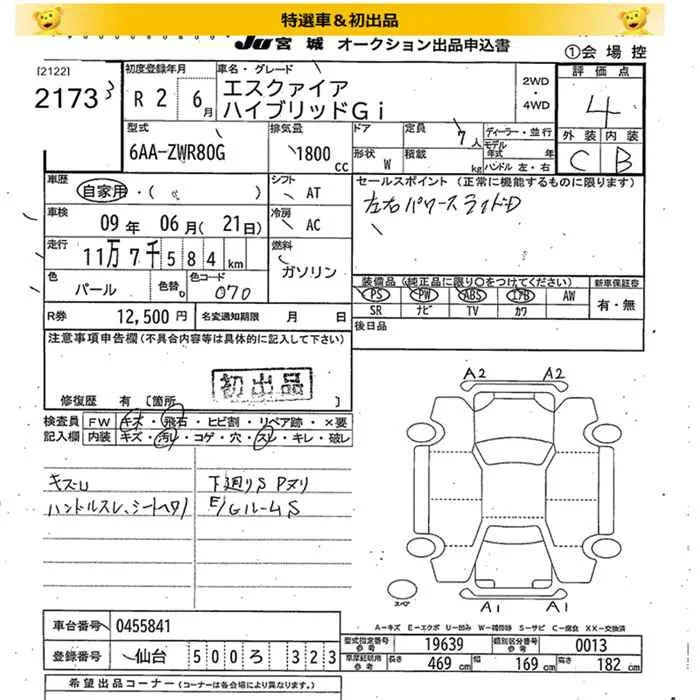 特選車＆初出品
JU宮城 オークション出品申込書
①会場控
[2122]
2173
初度登録年月
R 2 6月
車名・グレード
エスクァイア
ハイブリッドGi
2WD
・
4WD
評価点
4
外装 内装
C B
型式
6AA-ZWR80G
排気量
1800 CC
ドア
形状 W
定員 7人
積載 kg
ディーラー・並行
モデル年式 年
ハンドル 左・右
車歴
自家用・( )
シフト
AT
セールスポイント (正常に機能するものに限ります)
左右パワースライドD
車検
09年 06月(21日)
冷房
AC
走行
11万7千584km
燃料
ガソリン
色
パール
色替
色コード
070
装備品(純正品に限り○をつけてください)
新車保証書
PS PW ABS エアB AW
有・無
SR ナビ TV カワ
R券
12,500円
名変通知期限 月 日
後日品
注意事項申告欄(不具合内容等は具体的に記入して下さい)
初出品
修復歴 有 [箇所 ]
検査員記入欄
FW キズ・飛石・ヒビ割・リペア跡・×要
内装 キズ・汚レ・コゲ・穴・スレ・キレ・破レ
キズU
ハンドルスレ、シートヘタリ
下廻りS Pヌリ
E/GルームS
A2 A2
スペア
A1 A1
A－キズ E－エクボ U－凹み W－補修跡 S－サビ C－腐食 XX－交換済
車台番号 0455841
登録番号 仙台 500 ろ 323
型式指定番号 参考 19639
類別区分番号 参考 0013
車庫証明用 参考
長さ 469cm 幅 169cm 高さ 182cm
希望出品コーナー (コーナーは各会場により異なります。)